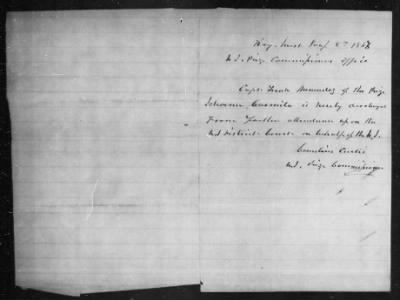 Key West
U.S. Prize Commissioners Office
Capt. Frank Menendez of the Prize
Schooner is hereby discharged
from further attendance upon the
U.S. District Court on behalf of the U.S.
U.S. Prize Commissioner